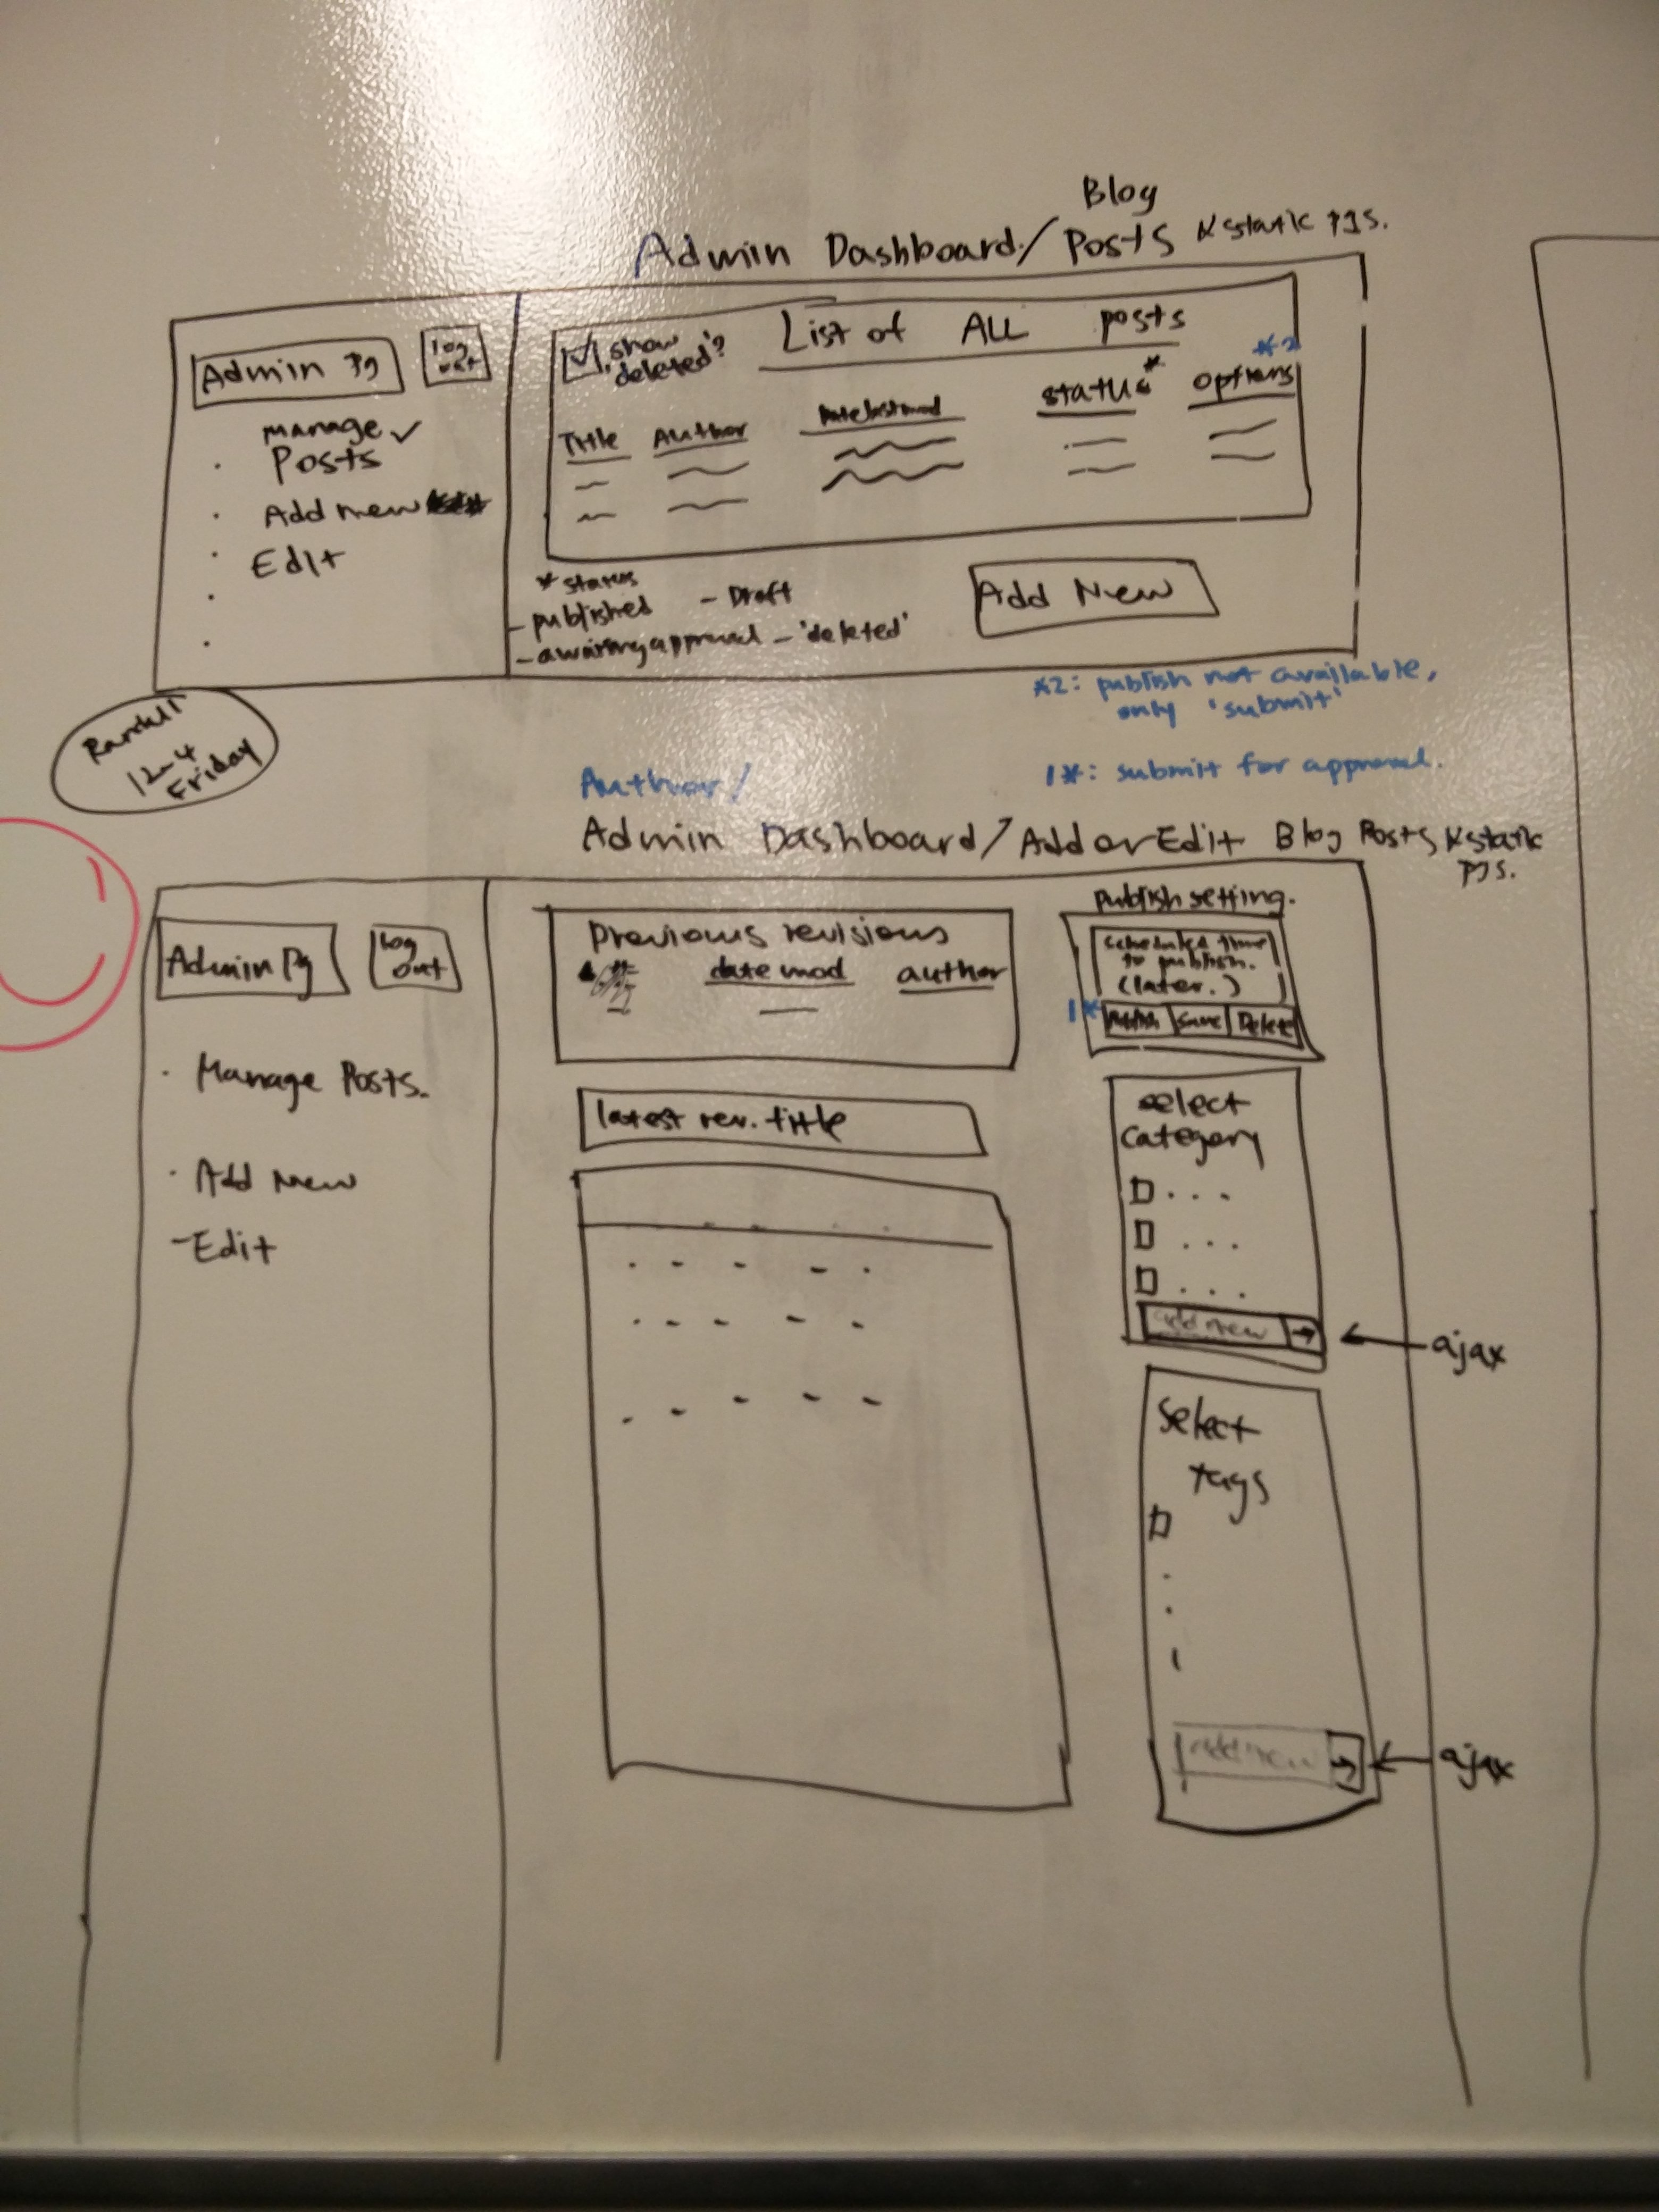 Blog
Admin Dashboard/ Posts & static pgs.
Admin Pg
log out
manage ✓
Posts
Add new
Edit
✓ show
deleted?
List of ALL posts
*2
Title Author Date last mod status* options
* status
- published - Draft
- awaiting approval - 'deleted'
Add New
*2: publish not available,
only 'submit'
12-4
Friday
Author/
1*: submit for approval.
Admin Dashboard/Add or Edit Blog Posts & static
pgs.
Admin Pg
Log
out
Manage Posts.
Add New
- Edit
Previous revisions
date mod author
latest rev. title
publish setting.
scheduled time
to publish.
(later.)
1*
Publish Save Delete
select
category
add new → ← ajax
Select
tags
add new → ← ajax